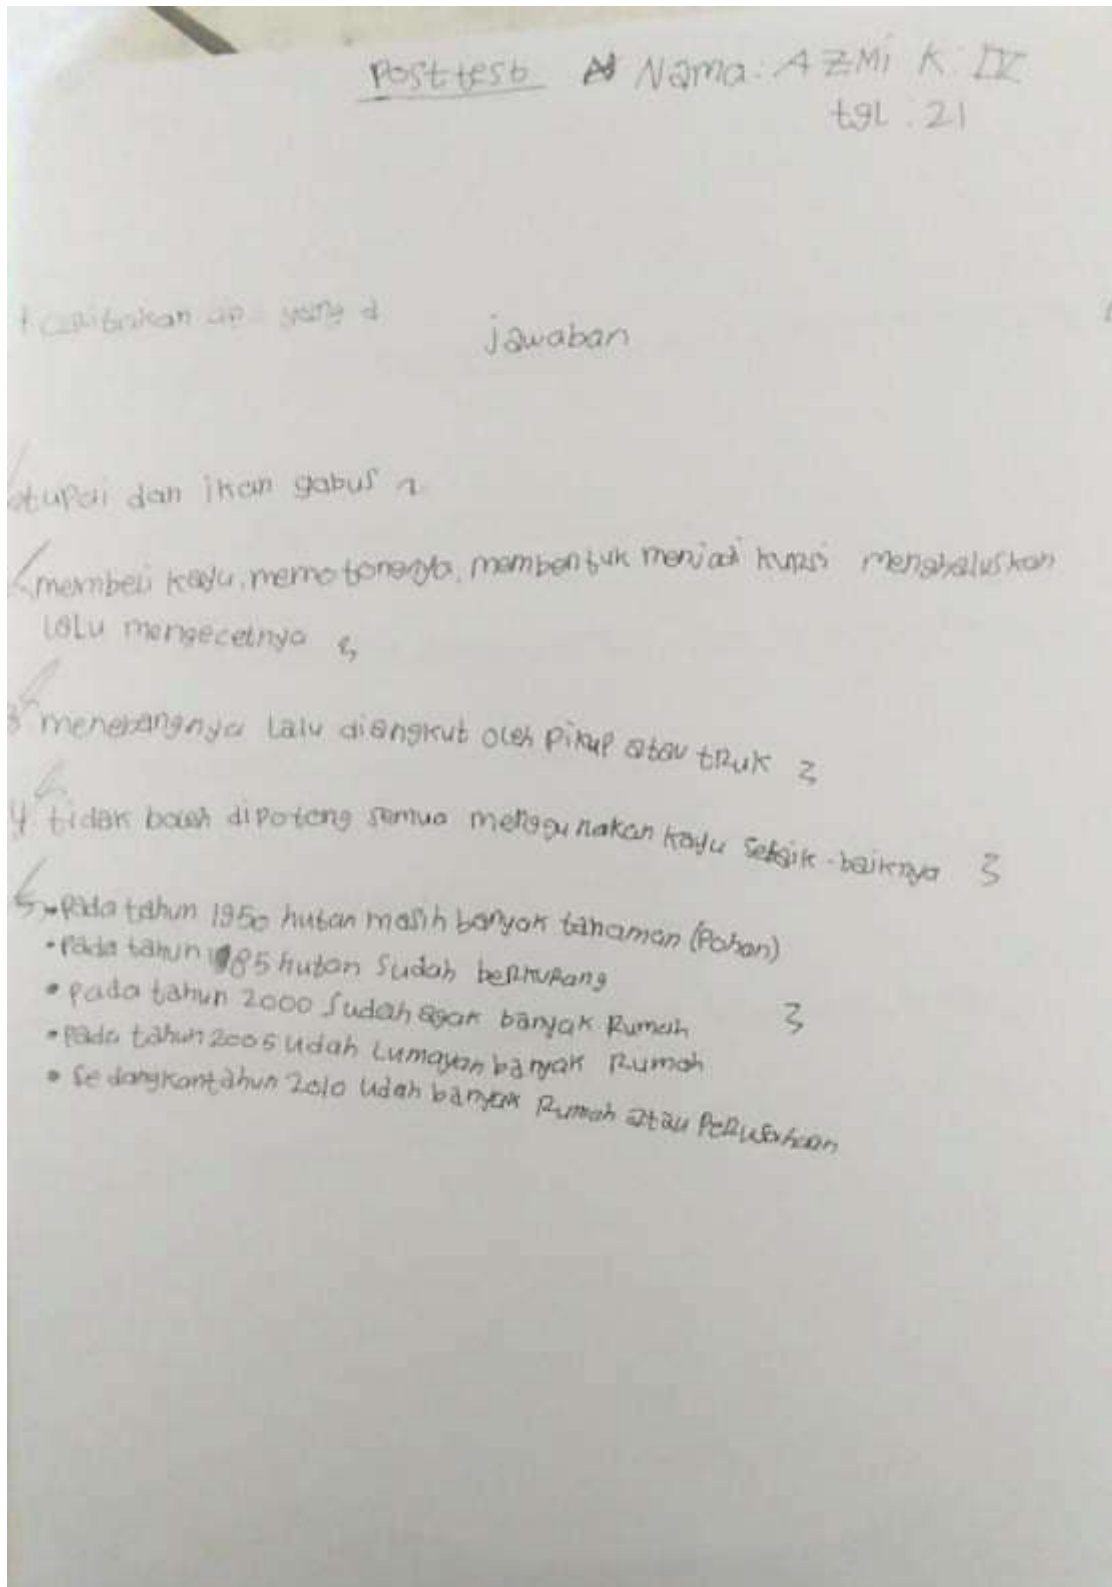 Posttest Nama: AZMi K: IV
tgl : 21
yang d
jawaban
tupai dan ikan gabus 2
membeli kayu, memotongnya, membentuk menjadi kursi menghaluskan
lalu mengecetnya 3
3 menebangnya lalu diangkut oleh Pikup atau tRuk 3
4 tidak boleh dipotong semua menggunakan kayu sebaik-baiknya 3
5 • Pada tahun 1950 hutan masih banyak tanaman (Pohon)
• Pada tahun 1985 hutan sudah beRkuRang
• pada tahun 2000 sudah agak banyak Rumah 3
• Pada tahun 2005 udah Lumayan banyak Rumah
• Sedangkan tahun 2010 udah banyak Rumah atau PeRusahaan